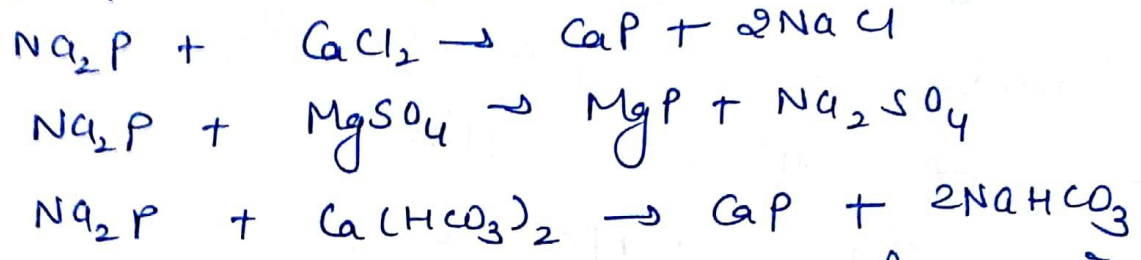 Na₂P + CaCl₂ → CaP + 2NaCl
Na₂P + MgSO₄ → MgP + Na₂SO₄
Na₂P + Ca(HCO₃)₂ → CaP + 2NaHCO₃